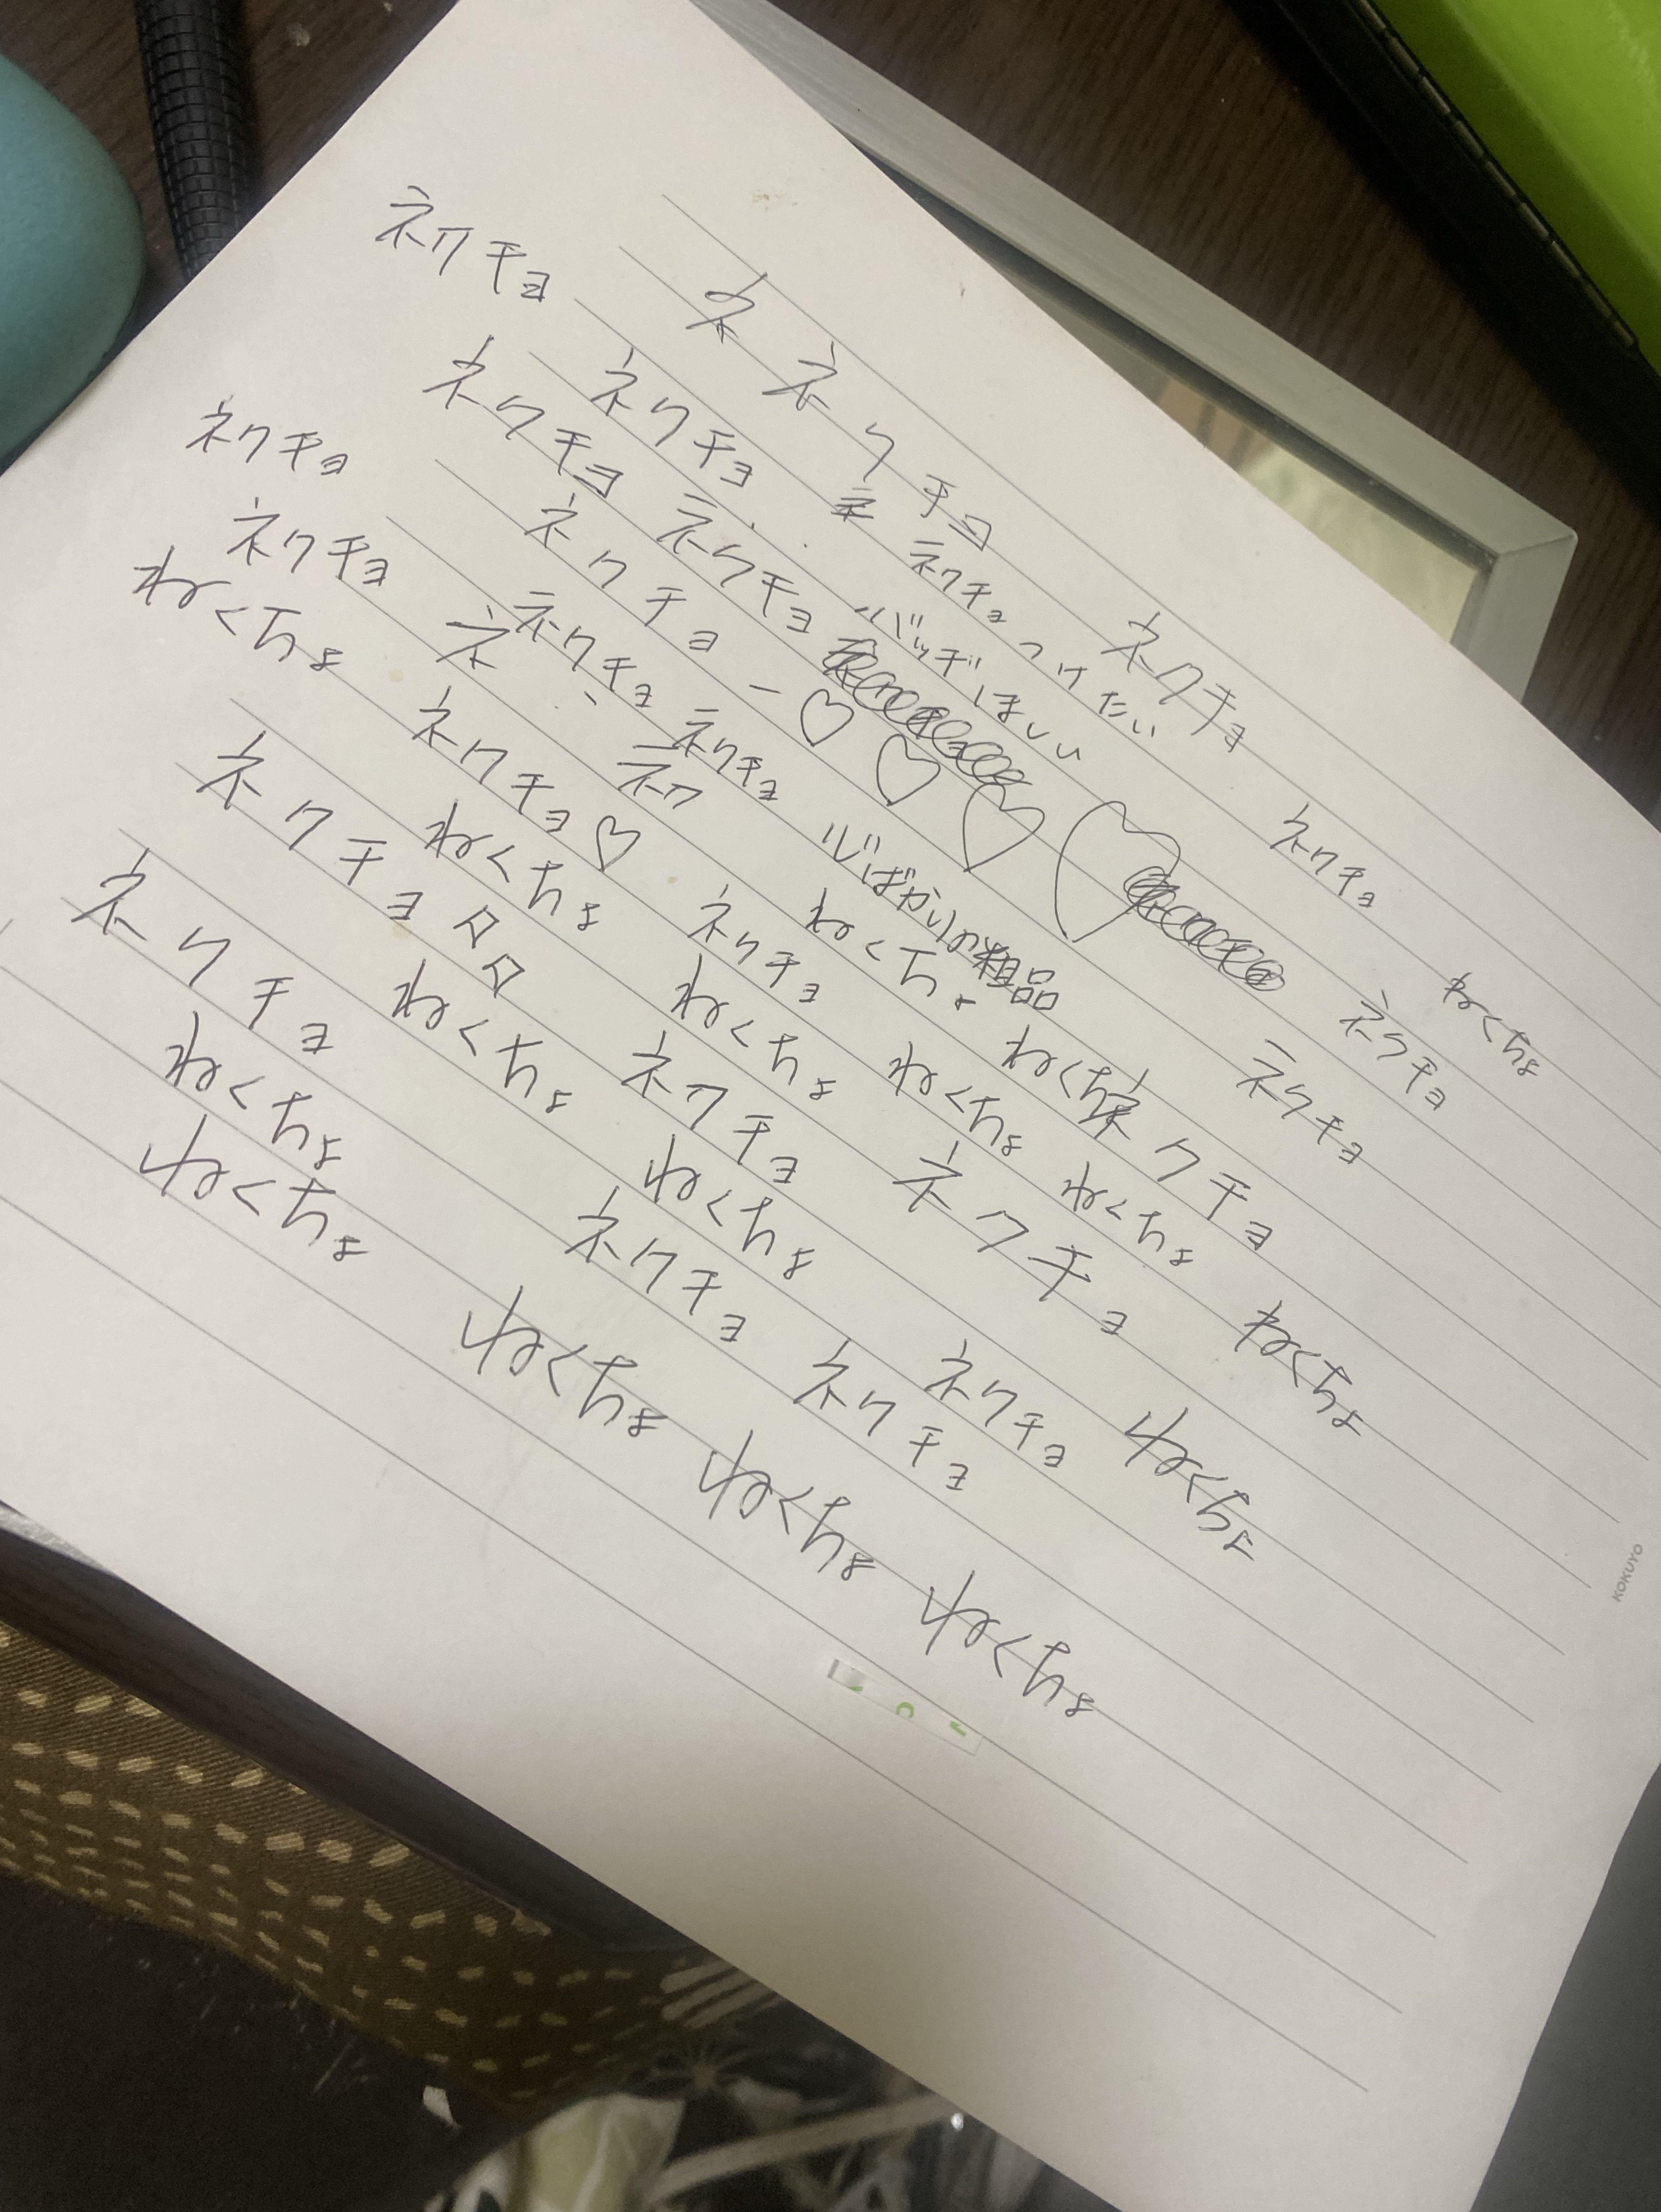 ネクチョ
ネ
ネクチョ
ネクチョ
ネクチョ
ネクチョ
ネ
ネクチョつけたい
ネクチョ
ネクチョ
ネクチョ
バッヂほしい
ネクチョー♡♡♡♡
ネクチョ
ネクチョ
ねくちょ
ネ
ネクチョ
ネクチョ
ネク
心ばかりの粗品
ネクチョ
ねくちょ
ネクチョ
ネクチョ♡
ネクチョ
ねくちょ
ねくち
ネクチョ
ネクチョ
ねくちょ
ねくちょ
ねくちょ
ねくちょ
ネクチョ
ねくちょ
ネクチョ
ネクチョ
ねくちょ
ねくちょ
ねくちょ
ネクチョ
ネクチョ
ねくちょ
ねくちょ
ネクチョ
ねくちょ
ねくちょ
ねくちょ
KOKUYO